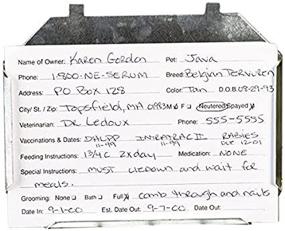 Name of Owner: Karen Gordon Pet: Java
Phone: 1800-NE-SERUM Breed: Belgian Tervuren
Address: PO Box 128 Color: Tan D.O.B. 08-29-93
City/St./Zip: Topsfield, MA 01983 M F Neutered Spayed
Veterinarian: Dr Ledoux Phone: 555-5555
Vaccinations & Dates: DHLPP INTRATRAC II RABIES
11-99 11-99 DUE 12-01
Feeding Instructions: 1 3/4 C 2xday Medication: NONE
Special Instructions: must lie down and wait for
meals.
Grooming: None Bath Full comb through and nails
Date In: 9-1-00 Est. Date Out: 9-7-00 Date Out: